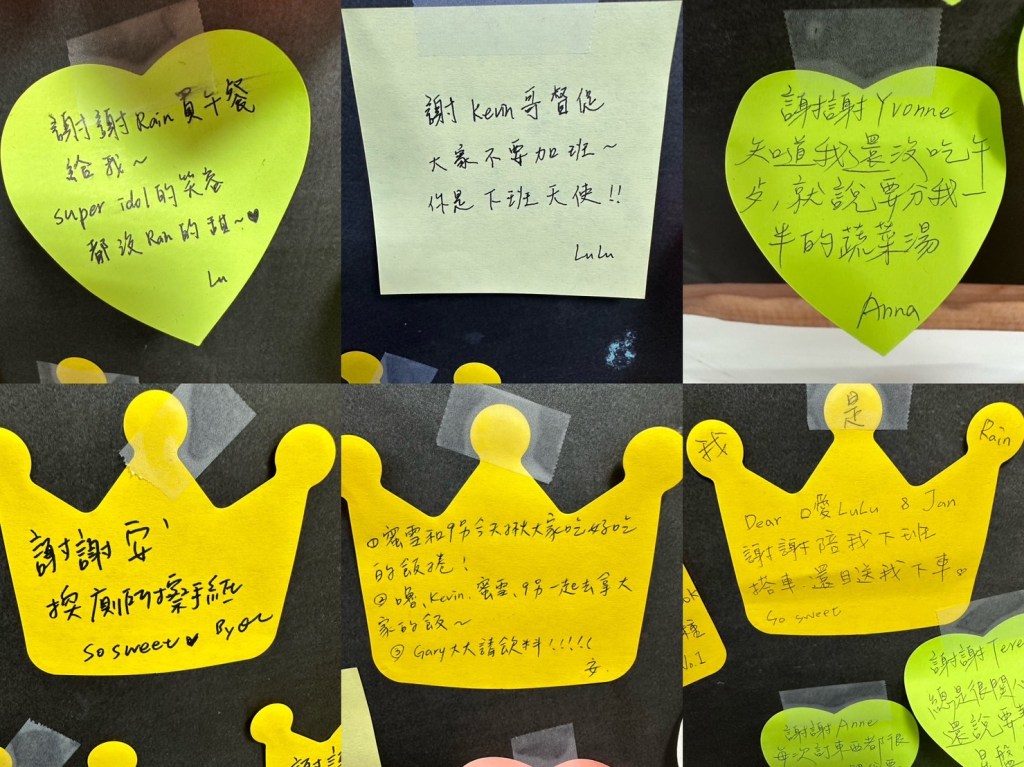 謝謝Rain買午餐
給我~
super idol的笑容
都沒Rain的甜~♥
Lu
謝 Kevin 哥督促
大家不要加班~
你是下班天使!!
LuLu
謝謝Yvonne
知道我還沒吃午
歺,就說要分我一
半的蔬菜湯
Anna
謝謝安
換廁所擦手紙
So sweet ♥ By
①蜜雪和9另今天揪大家吃好吃
的飯捲!
②嚕、Kevin、蜜雪、9另一起去拿大
家的飯~
③ Gary大大請飲料!!!!!
安.
我 是 Rain
Dear 口愛LuLu & Jan
謝謝陪我下班
搭車.還目送我下車♡
So sweet
種
No.1
謝謝Anne
每次訂東西都很
謝謝Tere
總是很關心
還說要